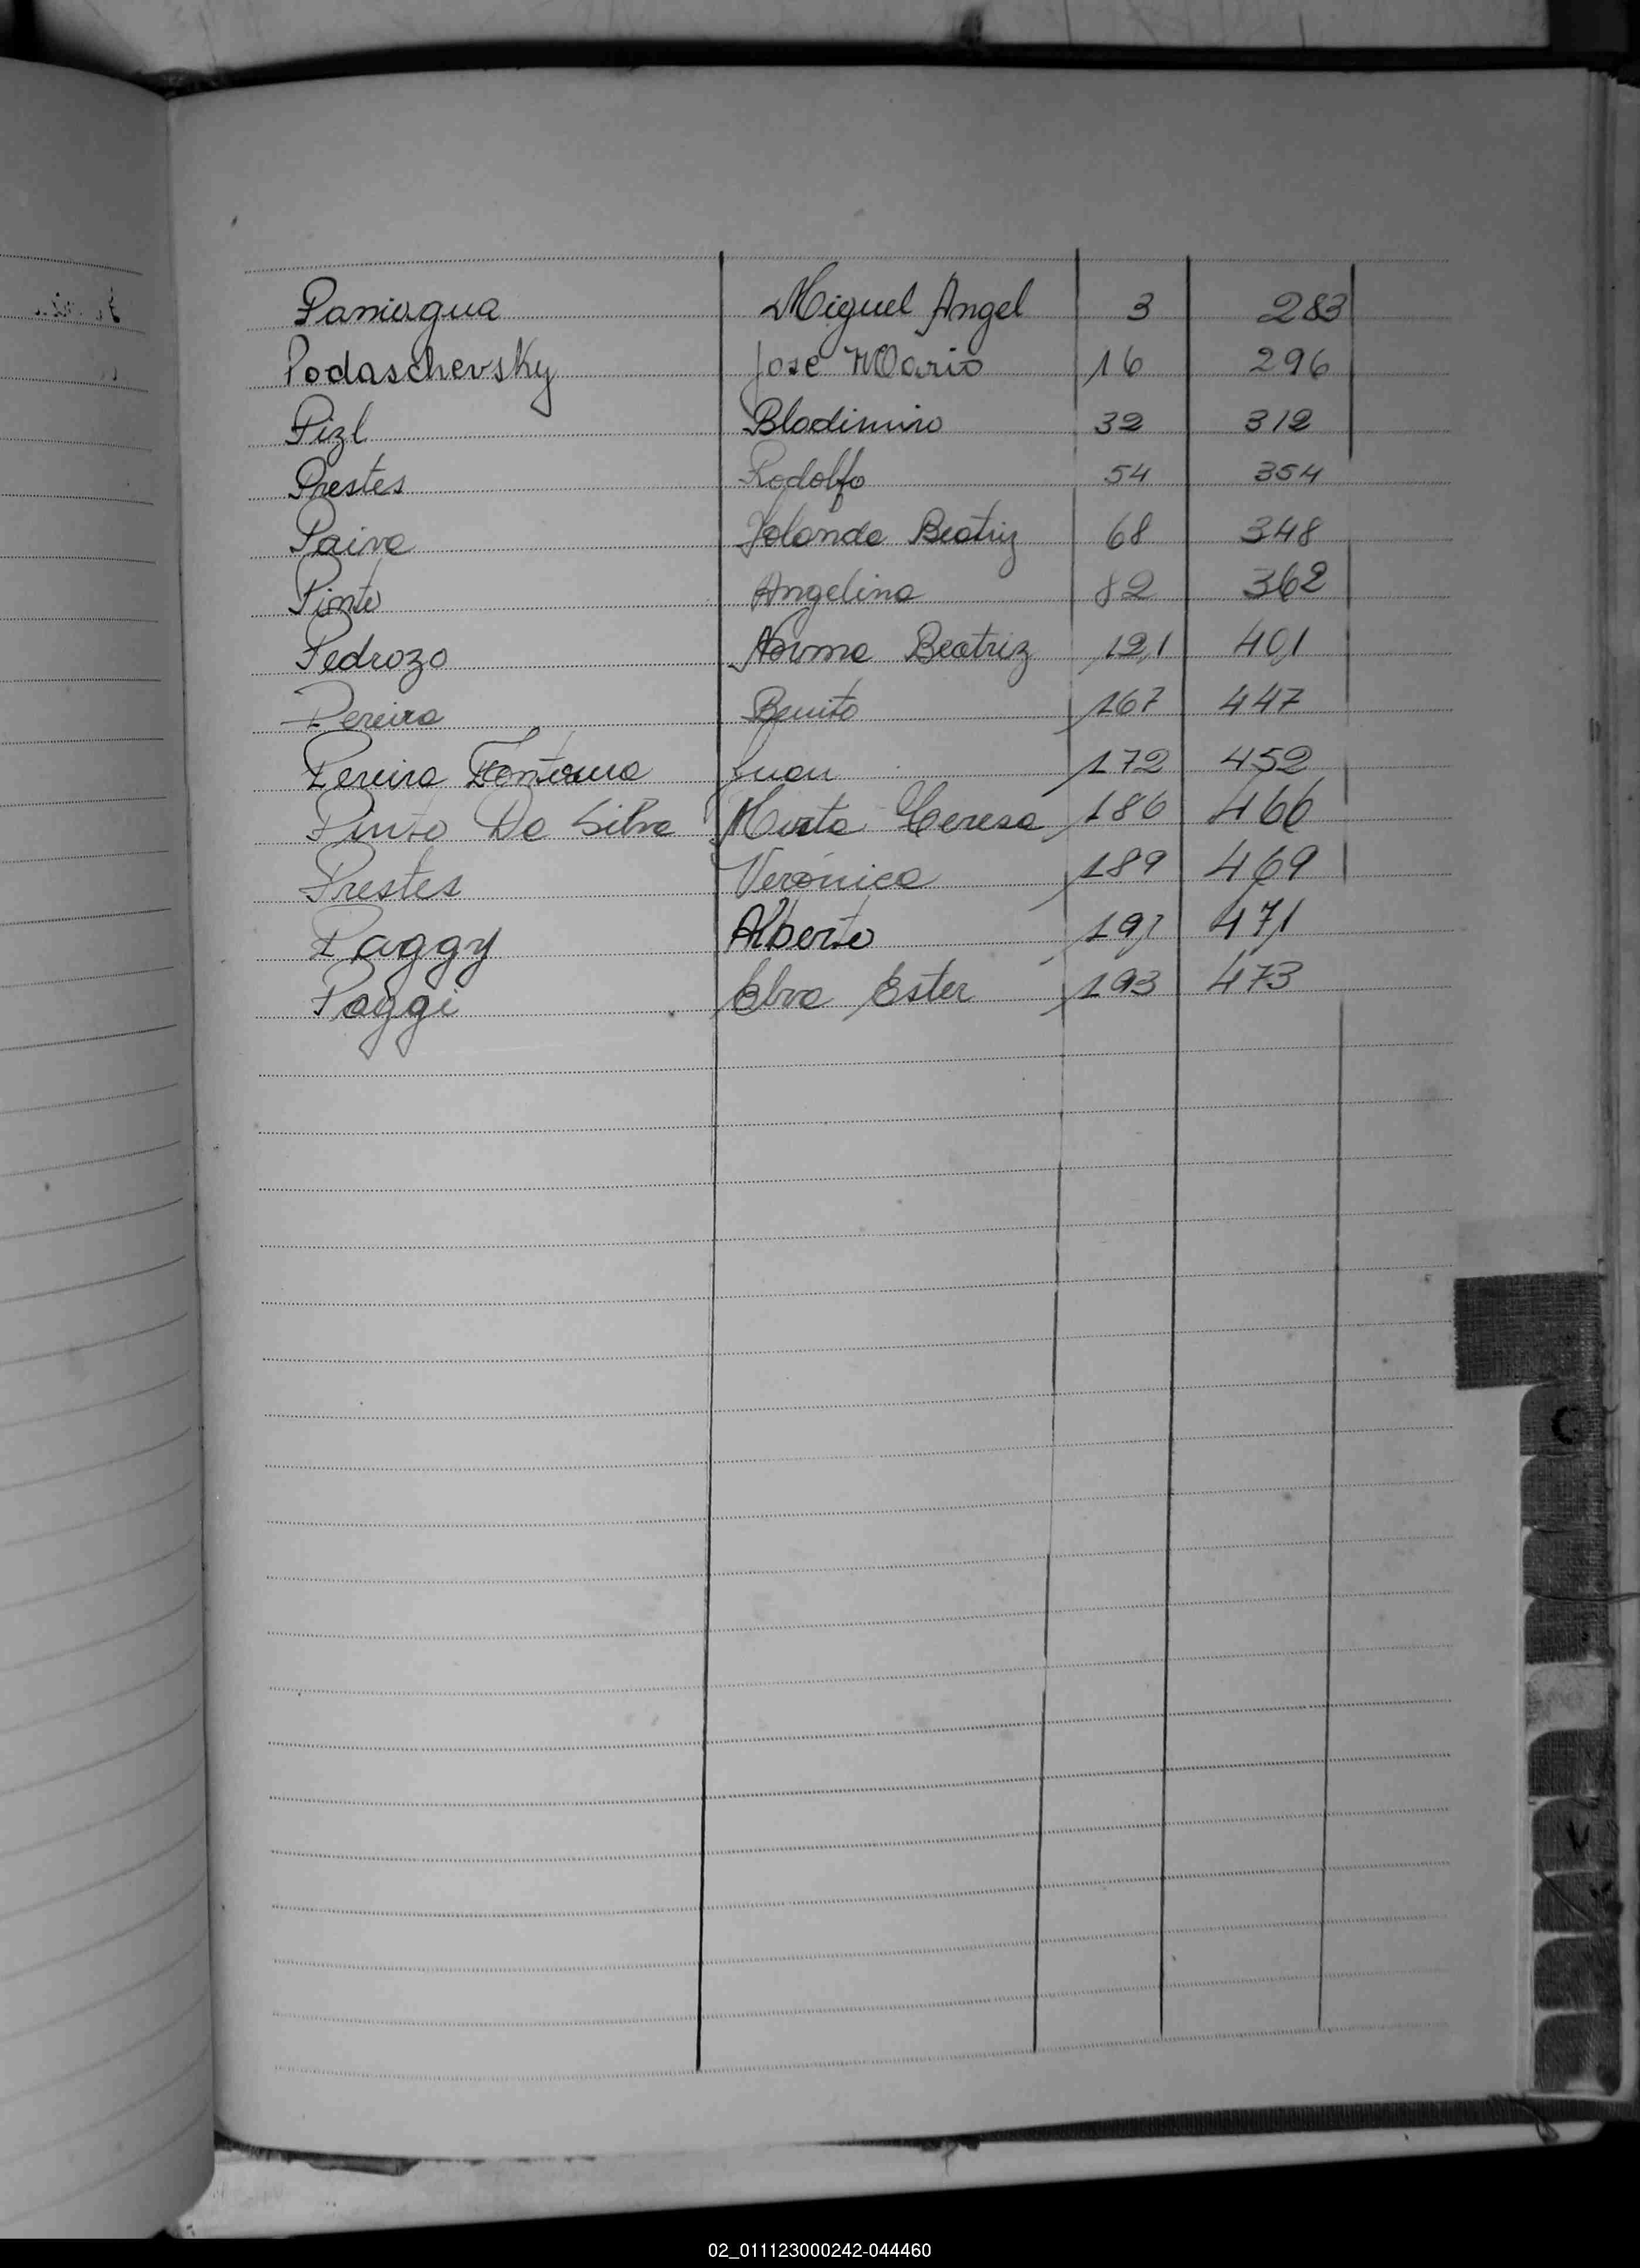 Paniagua Miguel Angel 3 283
Podaschevsky Jose Mario 16 296
Pizl Bladimiro 32 312
Prestes Rodolfo 54 354
Paiva Yolanda Beatriz 68 348
Pinto Angelina 82 362
Pedrozo Norma Beatriz 121 401
Pereira Benito 167 447
Pereira Juan 172 452
Pinto Da Silva Mirta Teresa 186 466
Prestes Verónica 189 469
Paggy Alberto 191 471
Paggi Elva Ester 193 473
02_011123000242-044460